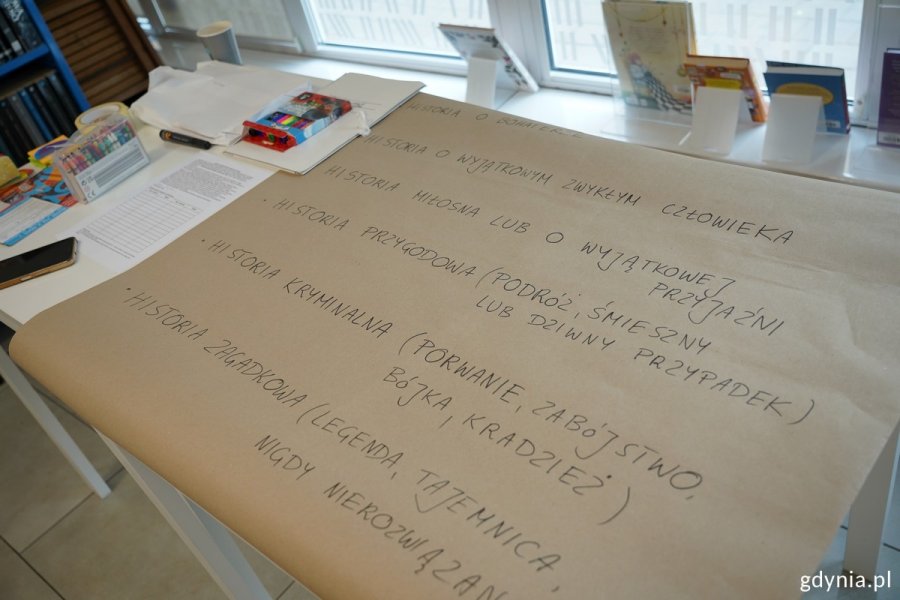 HISTORIA O BOHATERZE
HISTORIA O WYJĄTKOWYM ZWYKŁYM CZŁOWIEKA
HISTORIA MIŁOSNA LUB O WYJĄTKOWEJ
PRZYJAŹNI
• HISTORIA PRZYGODOWA (PODRÓŻ, ŚMIESZNY
LUB DZIWNY PRZYPADEK)
• HISTORIA KRYMINALNA (PORWANIE, ZABÓJSTWO,
BÓJKA, KRADZIEŻ)
• HISTORIA ZAGADKOWA (LEGENDA, TAJEMNICA,
NIGDY NIEROZWIĄZAN
gdynia.pl